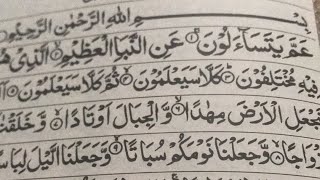 بِسْمِ اللهِ الرَّحْمٰنِ الرَّحِيْمِ
عَمَّ يَتَسَآءَلُوْنَ ۚ عَنِ النَّبَاِ الْعَظِيْمِ ۙ الَّذِيْ هُمْ
فِيْهِ مُخْتَلِفُوْنَ ؕ كَلَّا سَيَعْلَمُوْنَ ۙ ثُمَّ كَلَّا سَيَعْلَمُوْنَ
نَجْعَلِ الْاَرْضَ مِهٰدًا ۙ وَّالْجِبَالَ اَوْتَادًا ۪ۙ وَّخَلَقْنٰ
وَاجًا ۙ وَّجَعَلْنَا نَوْمَكُمْ سُبَاتًا ۙ وَّجَعَلْنَا الَّيْلَ لِبَاسً